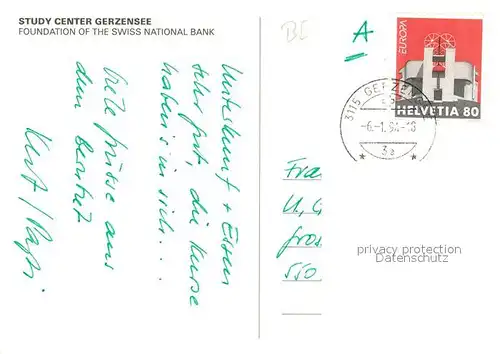 STUDY CENTER GERZENSEE
FOUNDATION OF THE SWISS NATIONAL BANK
Unterkunft + Essen
sehr gut, die Kurse
haben's in sich...
Viele Grüsse aus
dem
Kurt /
BE
A
EUROPA
HELVETIA 80
3115 GERZEN
-6.-1.94-18
3a
Fra
U. G
gros
550
privacy protection
Datenschutz